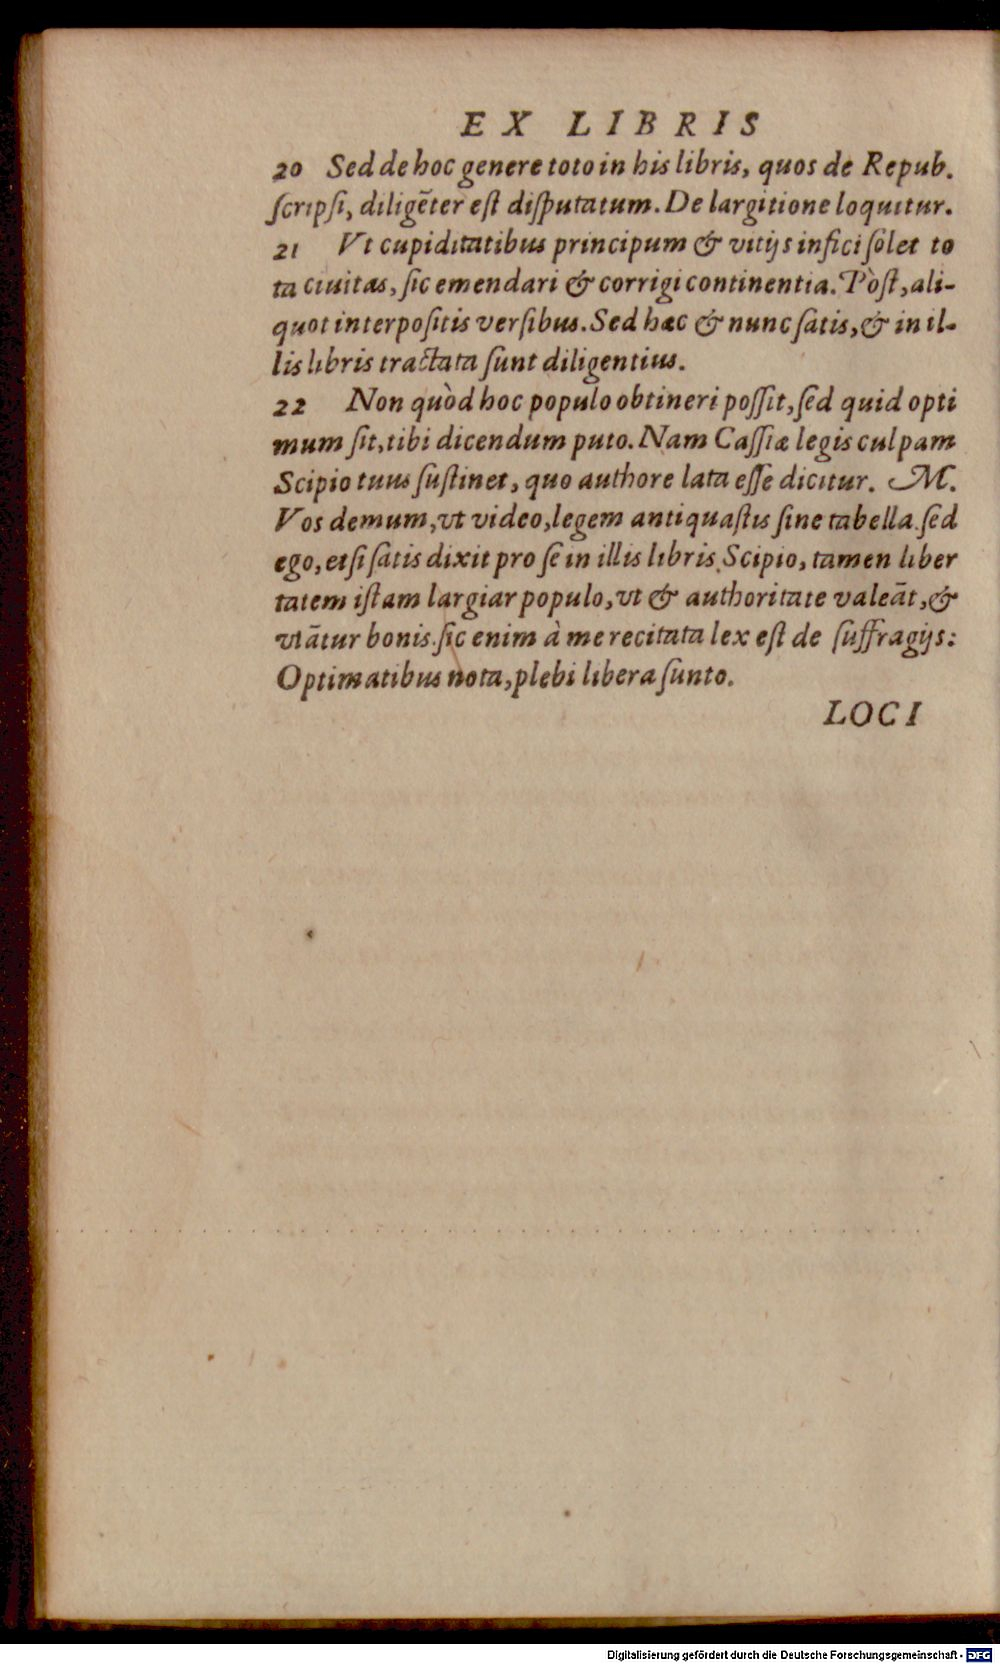 EX LIBRIS
20 Sed de hoc genere toto in his libris, quos de Repub.
ſcripſi, diligēter eſt diſputatum. De largitione loquitur.
21 Vt cupiditatibus principum & vitijs infici ſolet to
ta ciuitas, ſic emendari & corrigi continentia. Pòſt, ali-
quot interpoſitis verſibus. Sed hæc & nunc ſatis, & in il-
lis libris tractata ſunt diligentius.
22 Non quòd hoc populo obtineri poſſit, ſed quid opti
mum ſit, tibi dicendum puto. Nam Caſſiæ legis culpam
Scipio tuus ſuſtinet, quo authore lata eſſe dicitur. M.
Vos demum, vt video, legem antiquaſtis ſine tabella. ſed
ego, etſi ſatis dixit pro ſe in illis libris Scipio, tamen liber
tatem iſtam largiar populo, vt & authoritate valeāt, &
vtātur bonis. ſic enim à me recitata lex eſt de ſuffragijs:
Optimatibus nota, plebi libera ſunto.
LOCI
Digitalisierung gefördert durch die Deutsche Forschungsgemeinschaft - DFG